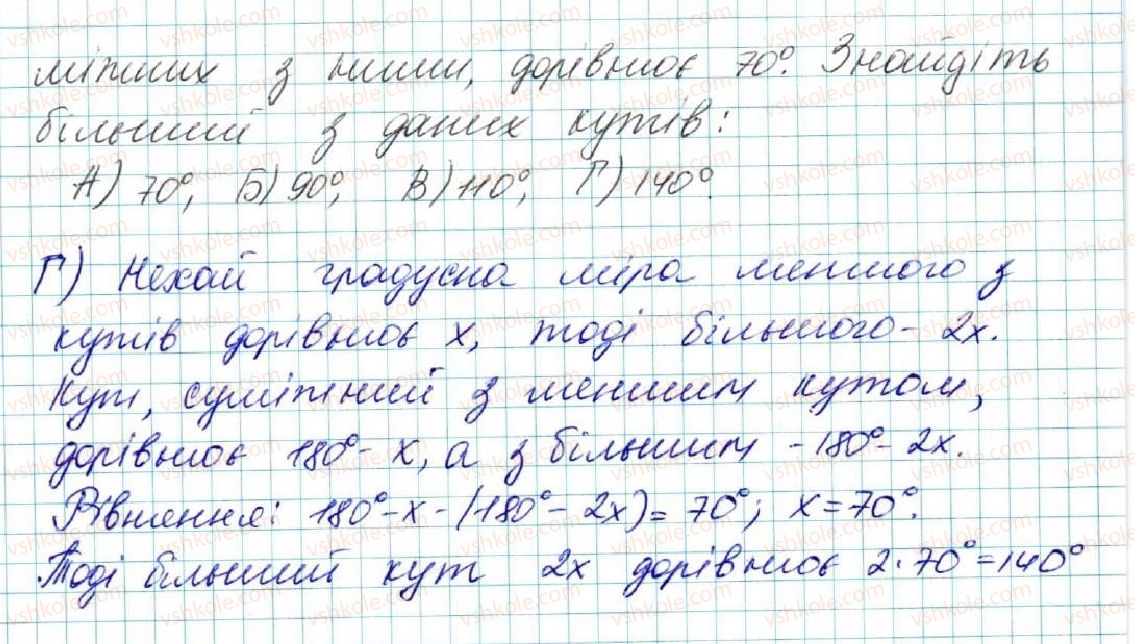 міжних з ними, дорівнює 70°. Знайдіть
більший з даних кутів:
А) 70°; Б) 90°; В) 110°; Г) 140°.
Г) Нехай градусна міра меншого з
кутів дорівнює х, тоді більшого - 2х.
Кут, суміжний з меншим кутом,
дорівнює 180° - х, а з більшим - 180° - 2х.
Рівняння: 180° - х - (180° - 2х) = 70°; х = 70°.
Тоді більший кут 2х дорівнює 2·70° = 140°